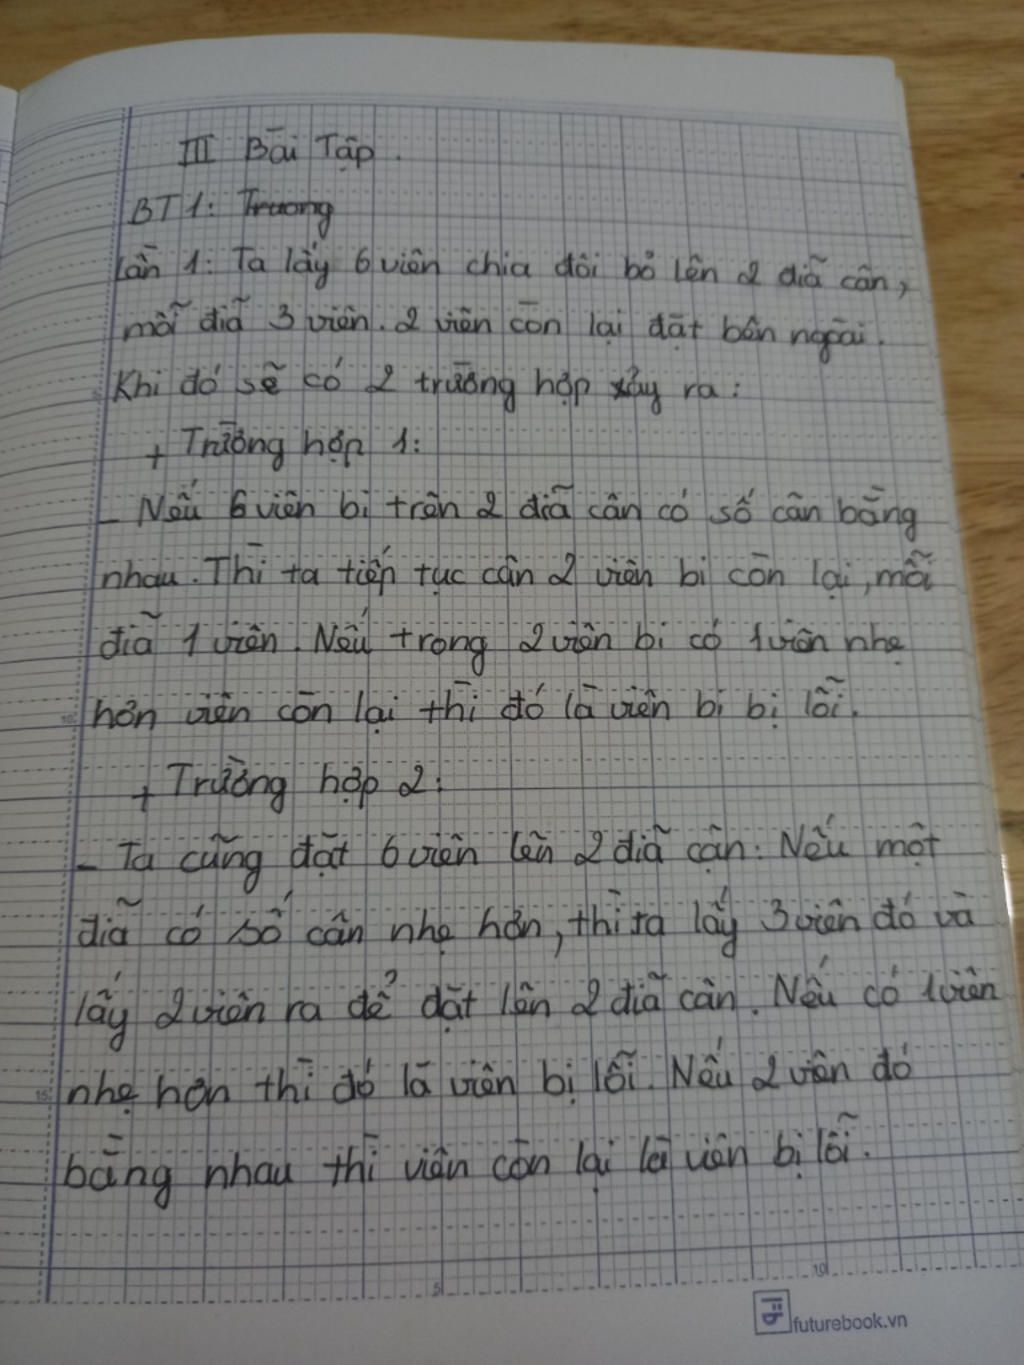 III Bài Tập.
BT1: Trương
Lần 1: Ta lấy 6 viên chia đôi bỏ lên 2 đĩa cân,
mỗi đĩa 3 viên. 2 viên còn lại đặt bên ngoài.
Khi đó sẽ có 2 trường hợp xảy ra:
+ Trường hợp 1:
- Nếu 6 viên bi trên 2 đĩa cân có số cân bằng
nhau. Thì ta tiếp tục cân 2 viên bi còn lại, mỗi
đĩa 1 viên. Nếu trong 2 viên bi có 1 viên nhẹ
hơn viên còn lại thì đó là viên bi bị lỗi.
+ Trường hợp 2:
- Ta cũng đặt 6 viên lên 2 đĩa cân. Nếu một
đĩa có số cân nhẹ hơn, thì ta lấy 3 viên đó và
lấy 2 viên ra để đặt lên 2 đĩa cân. Nếu có 1 viên
nhẹ hơn thì đó là viên bị lỗi. Nếu 2 viên đó
bằng nhau thì viên còn lại là viên bị lỗi.
10
15
5
10
futurebook.vn